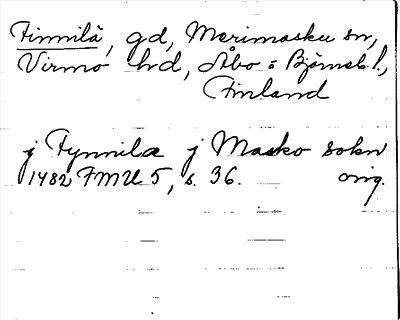 Finnilä, gd, Merimasku sn,
Virmo hd, Åbo o Björneb. l.,
Finland
j Fynnila j Masko sokn
1482 FMU 5, s. 36. orig.